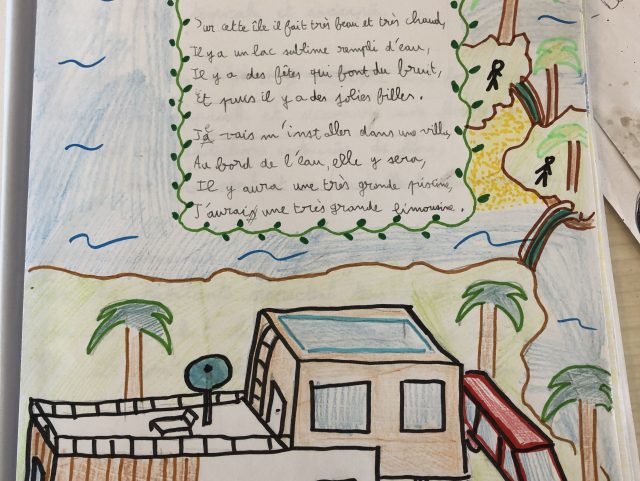 Sur cette île il fait très beau et très chaud,
Il y a un lac sublime rempli d'eau,
Il y a des fêtes qui font du bruit,
Et puis il y a des jolies filles.
Je vais m'installer dans une villa,
Au bord de l'eau, elle y sera,
Il y aura une très grande piscine,
J'aurais une très grande limousine.